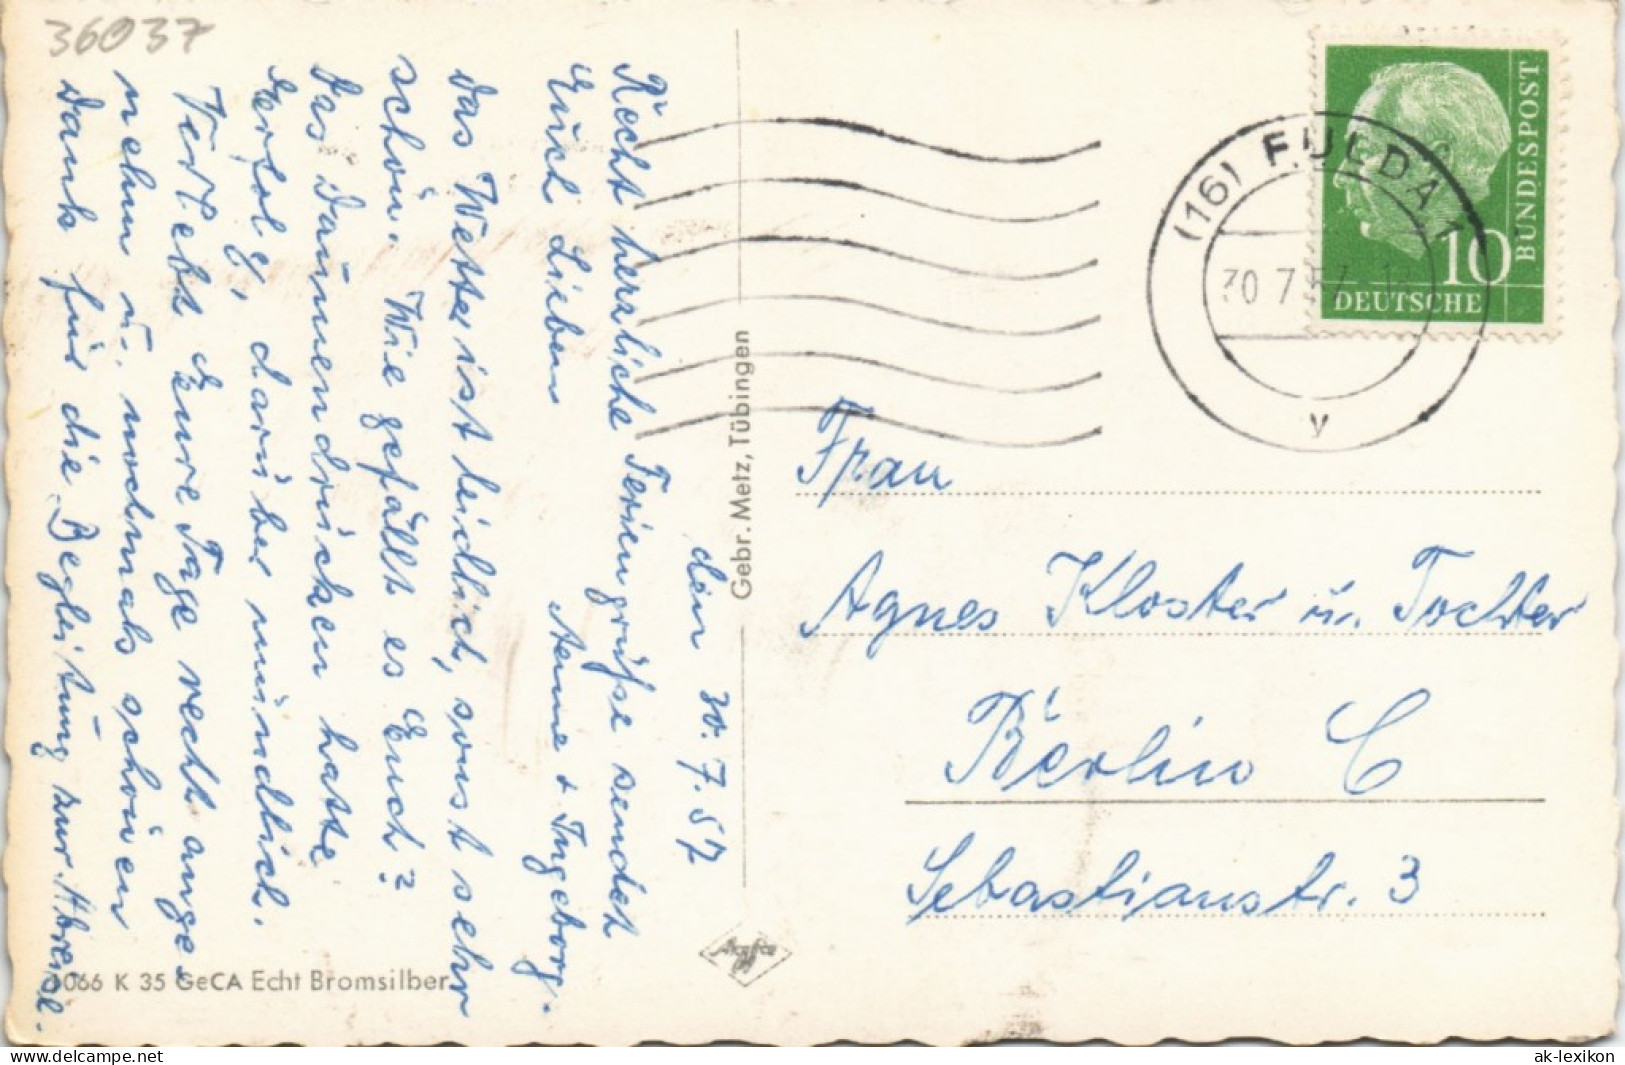 36037
den 30.7.57
Recht herzliche Feriengrüße sendet
Euch Lieben Aenne + Ingeborg.
Das Wetter ist leidlich, sonst sehr
schön. Wie gefällt es Euch?
Das Daumendrücken hatte
Erfolg, darüber mündlich.
Verlebt Eure Tage recht ange-
nehm u. nochmals schönen
Dank für die Begleitung zur Abreise.
1066 K 35 GeCA Echt Bromsilber
Gebr. Metz, Tübingen
Agfa
(16) FULDA 1
30.7.57
y
10
DEUTSCHE
BUNDESPOST
Frau
Agnes Kloster u. Tochter
Berlin C
Sebastianstr. 3
delcampe.net
ak-lexikon